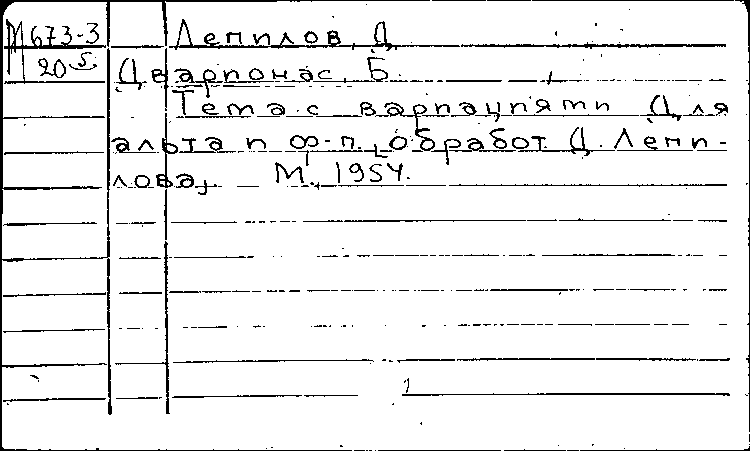 М 673-3 Лепилов, Д.
20 5. Дварионас, Б.
Тема с вариациями Для
альта и ф-п., [обработ. Д. Лепи-
лова]. М., 1954.